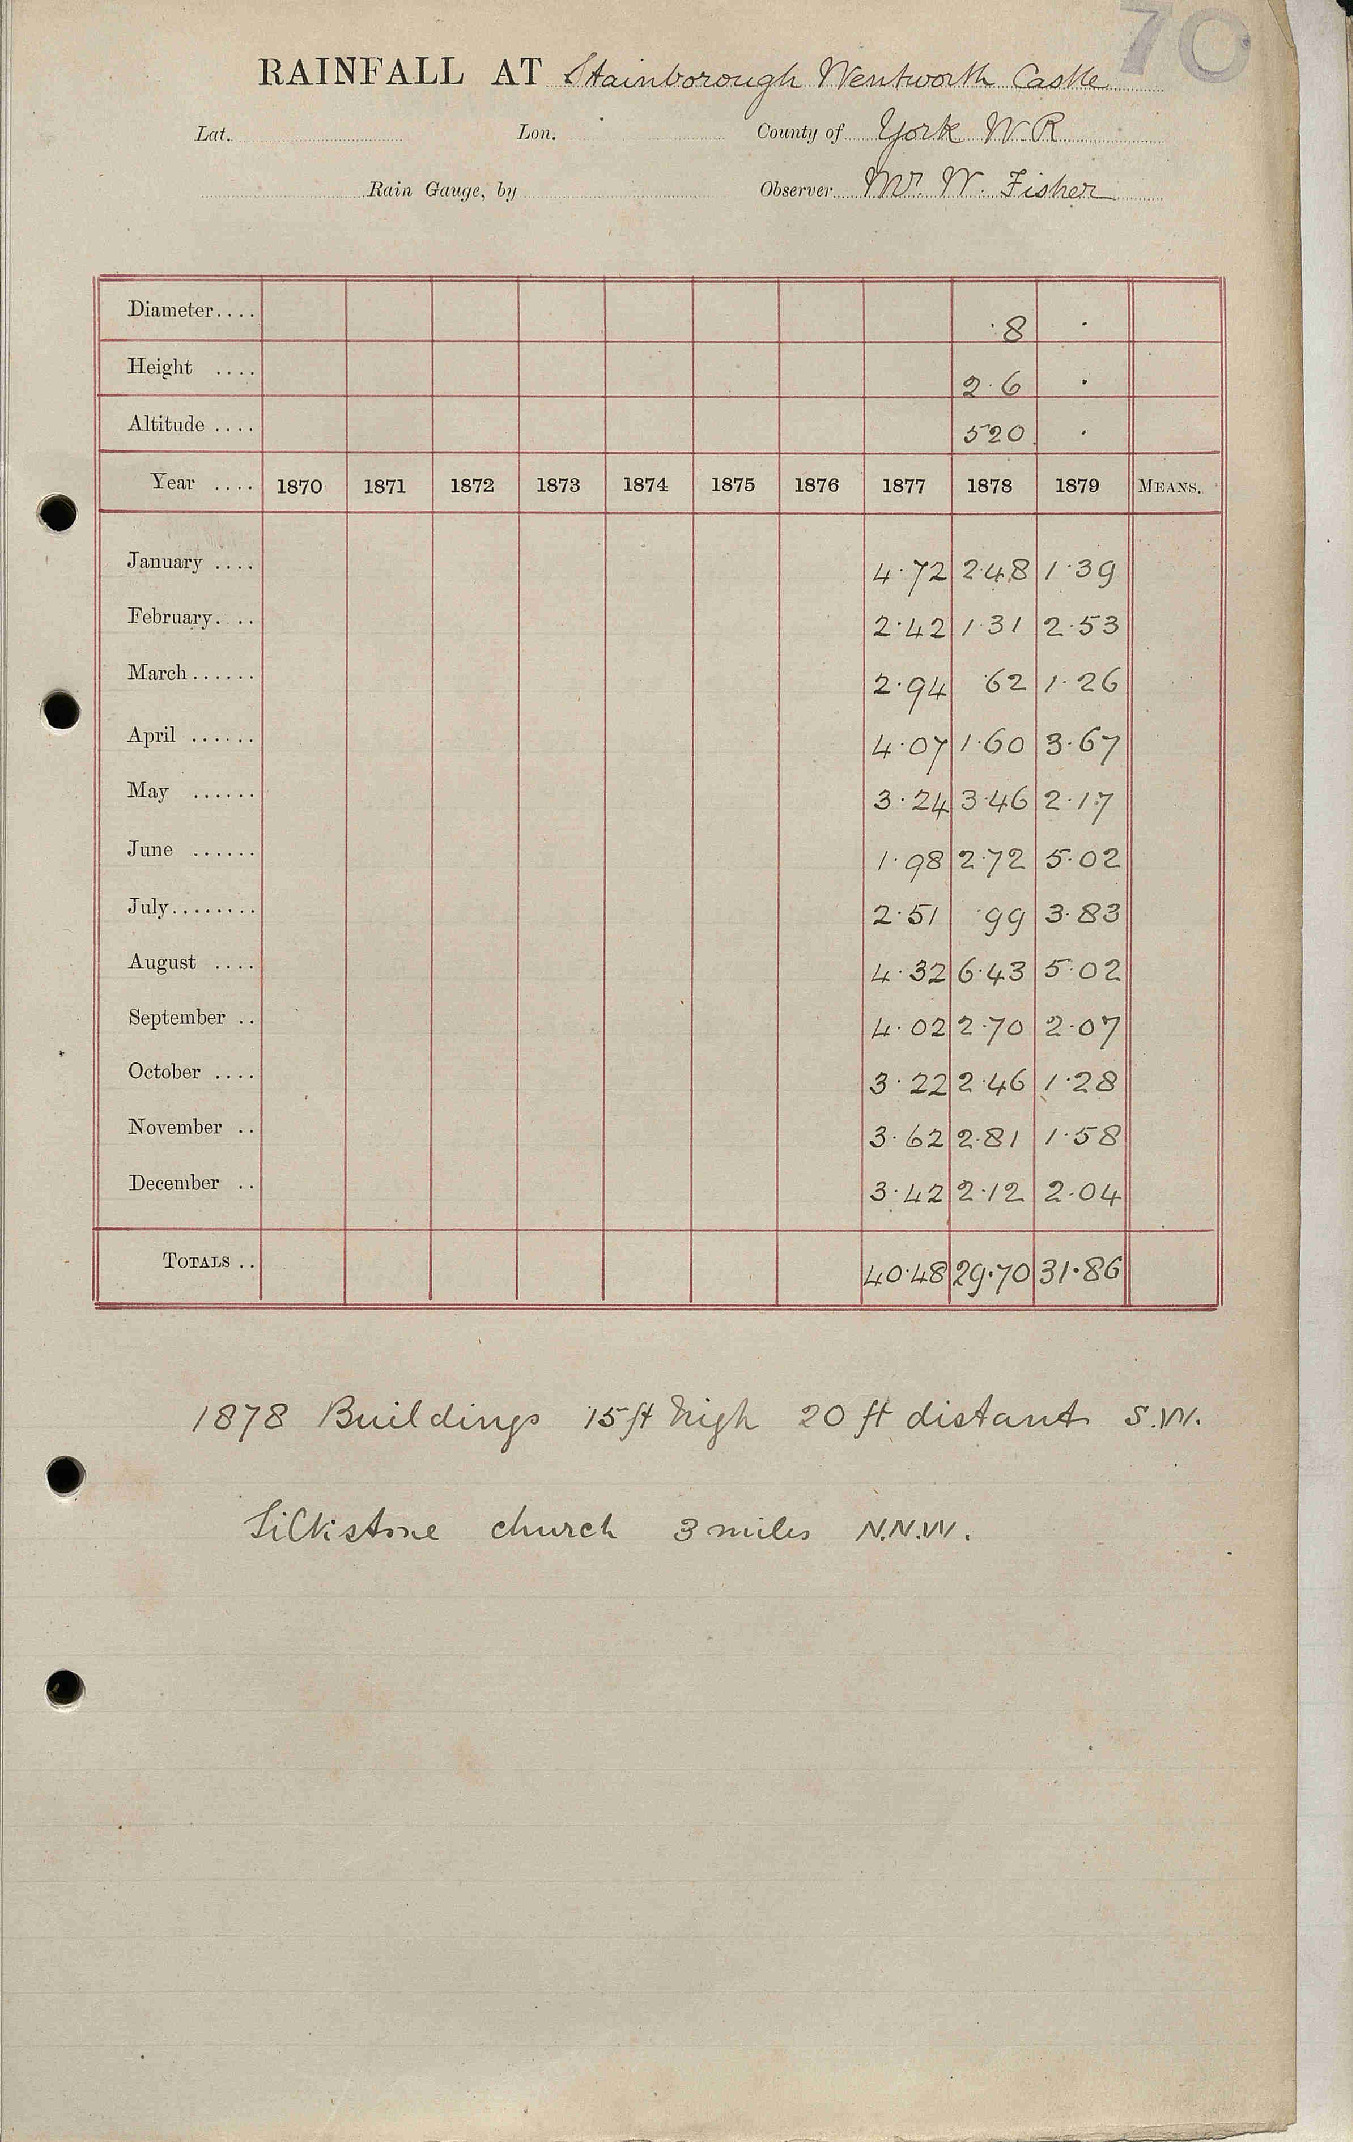 70
RAINFALL AT Stainborough Wentworth Castle
Lat. Lon. County of York W.R
Rain Gauge, by Observer Mr. W. Fisher
Diameter.... 8 ·
Height .... 2·6 ·
Altitude .... 520 ·
Year .... 1870 1871 1872 1873 1874 1875 1876 1877 1878 1879 MEANS.
January .... 4·72 2·48 1·39
February.... 2·42 1·31 2·53
March...... 2·94 ·62 1·26
April ...... 4·07 1·60 3·67
May ...... 3·24 3·46 2·17
June ...... 1·98 2·72 5·02
July........ 2·51 ·99 3·83
August .... 4·32 6·43 5·02
September .. 4·02 2·70 2·07
October .... 3·22 2·46 1·28
November .. 3·62 2·81 1·58
December .. 3·42 2·12 2·04
TOTALS .. 40·48 29·70 31·86
1878 Buildings 15 ft high 20 ft distant S.W.
Silkstone church 3 miles N.N.W.